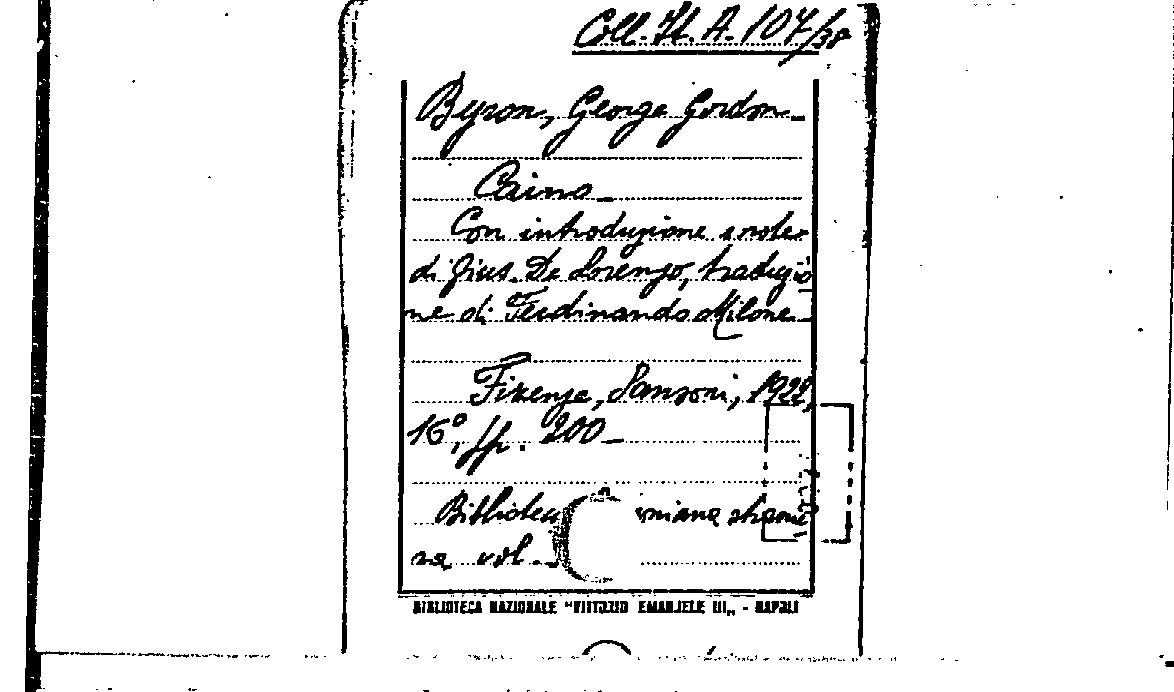 Coll. It. A. 107/38
Byron, George Gordon_
Caino_
Con introduzione e note
di Gius. De Lorenzo, traduzio
ne di Ferdinando Milone_
Firenze, Sansoni, 1922,
16°, pp. 200_
Bibliotec niana stranie
ra vol.
BIBLIOTECA NAZIONALE "VITTORIO EMANUELE III„ - NAPOLI